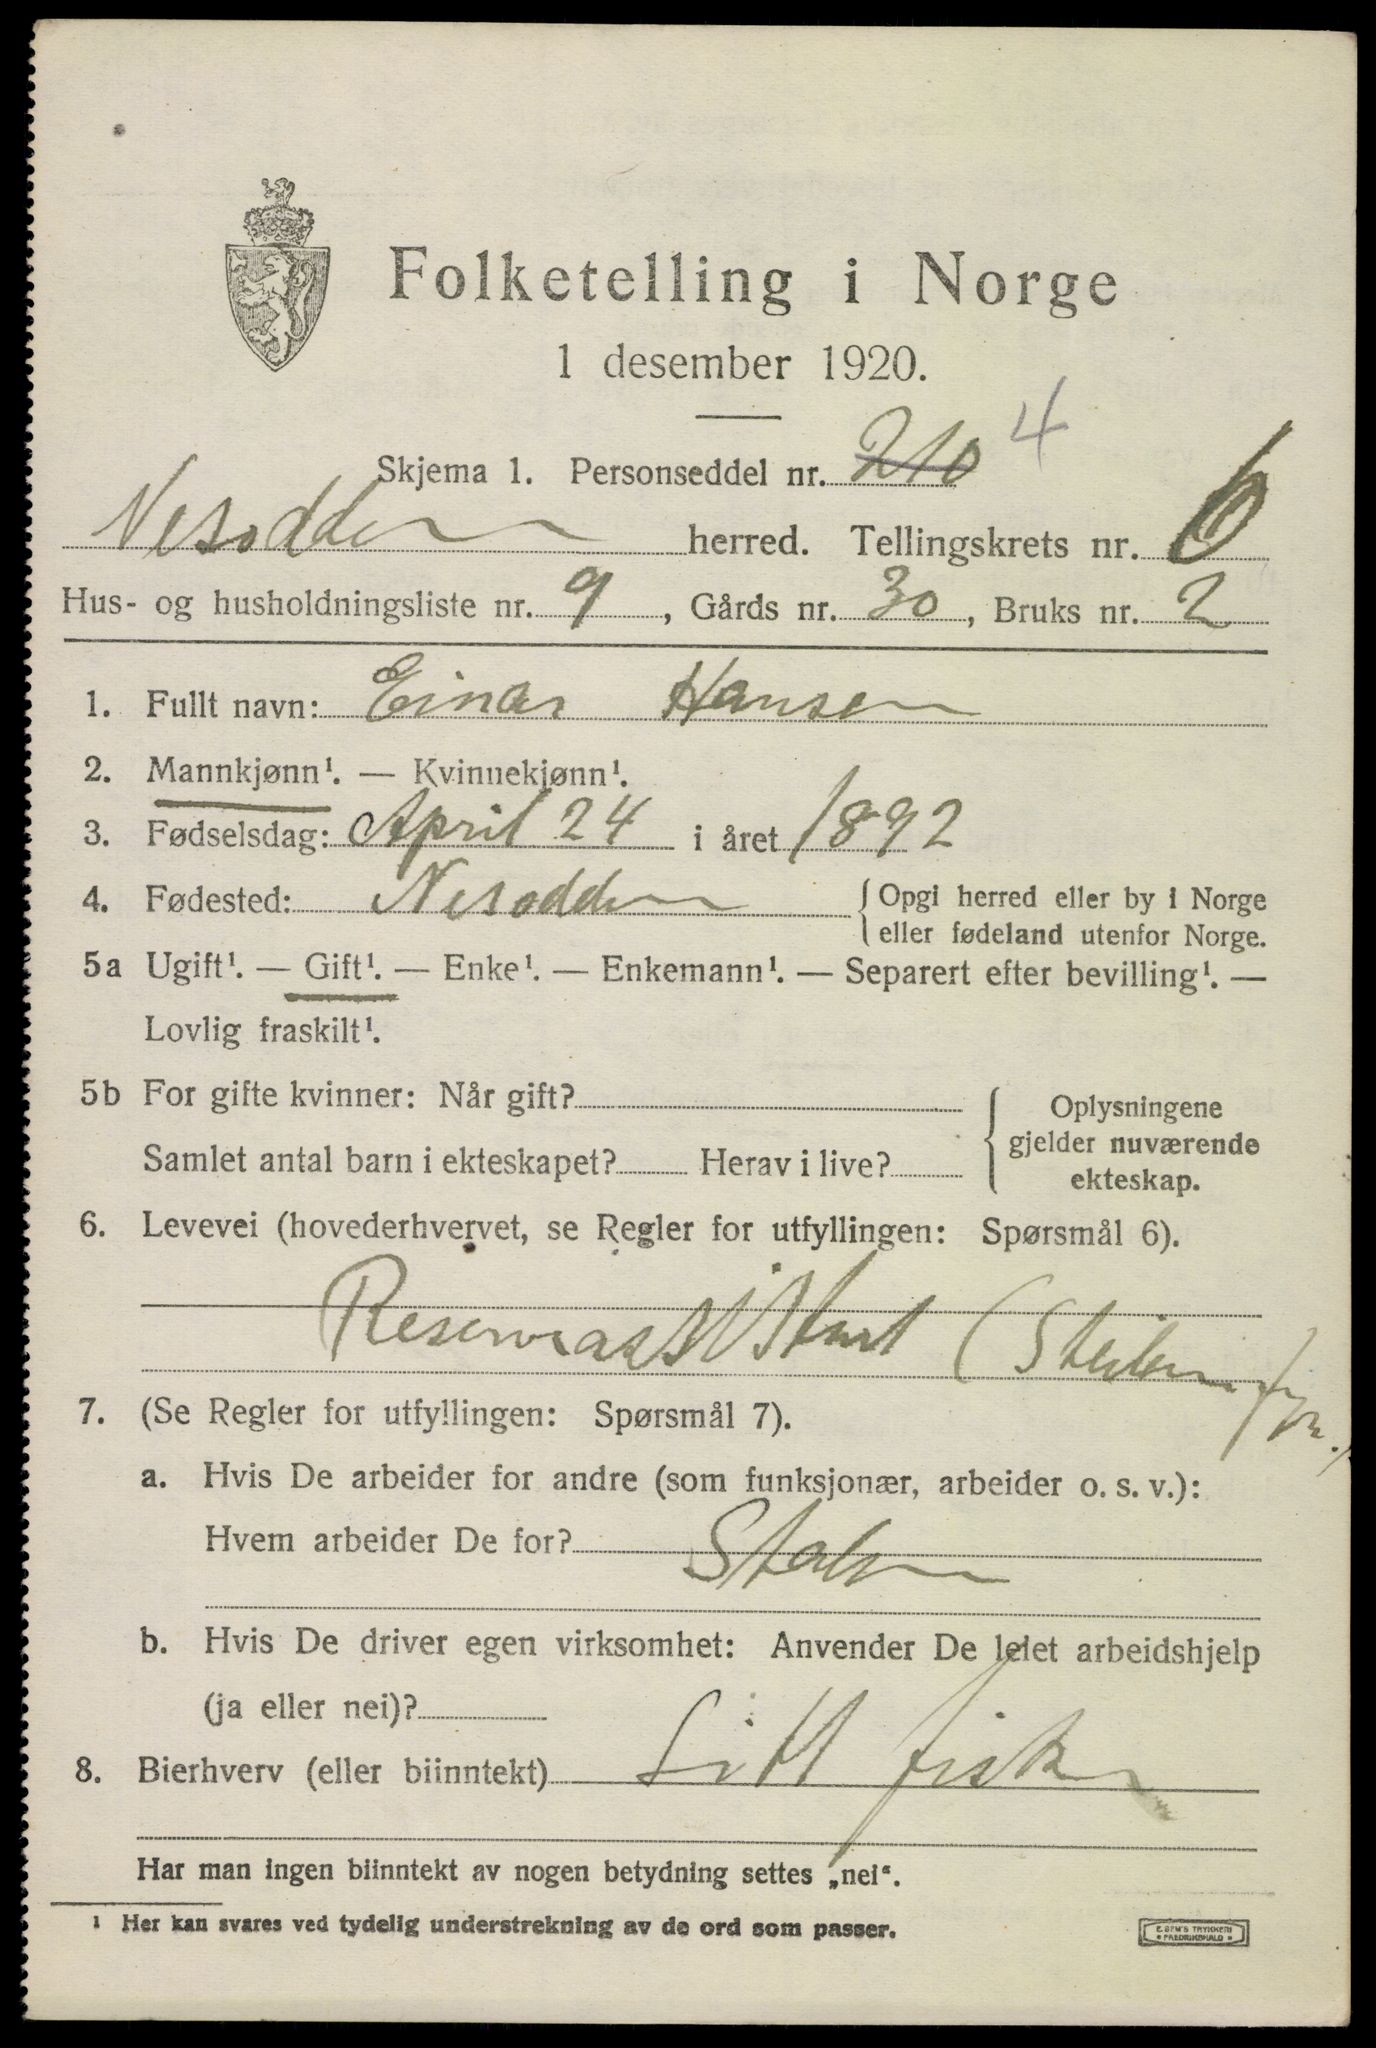 Folketelling i Norge
1 desember 1920.
Skjema 1. Personseddel nr. 210 4
Nesodden herred. Tellingskrets nr. 6
Hus- og husholdningsliste nr. 9, Gårds nr. 30, Bruks nr. 2
1. Fullt navn: Einar Hansen
2. Mannkjønn¹. — Kvinnekjønn¹.
3. Fødselsdag: April 24 i året 1892
4. Fødested: Nesodden { Opgi herred eller by i Norge
eller fødeland utenfor Norge.
5a Ugift¹. — Gift¹. — Enke¹. — Enkemann¹. — Separert efter bevilling¹. —
Lovlig fraskilt¹.
5b For gifte kvinner: Når gift?
Samlet antal barn i ekteskapet? Herav i live?
Oplysningene
gjelder nuværende
ekteskap.
6. Levevei (hovederhvervet, se Regler for utfyllingen: Spørsmål 6).
Reserveassistent (Steilene fyr.)
7. (Se Regler for utfyllingen: Spørsmål 7).
a. Hvis De arbeider for andre (som funksjonær, arbeider o. s. v.):
Hvem arbeider De for? Staten
b. Hvis De driver egen virksomhet: Anvender De leiet arbeidshjelp
(ja eller nei)?
8. Bierhverv (eller biinntekt) Litt fiske
Har man ingen biinntekt av nogen betydning settes „nei“.
¹ Her kan svares ved tydelig understrekning av de ord som passer.
E. SEM'S TRYKKERI
FREDRIKSHALD